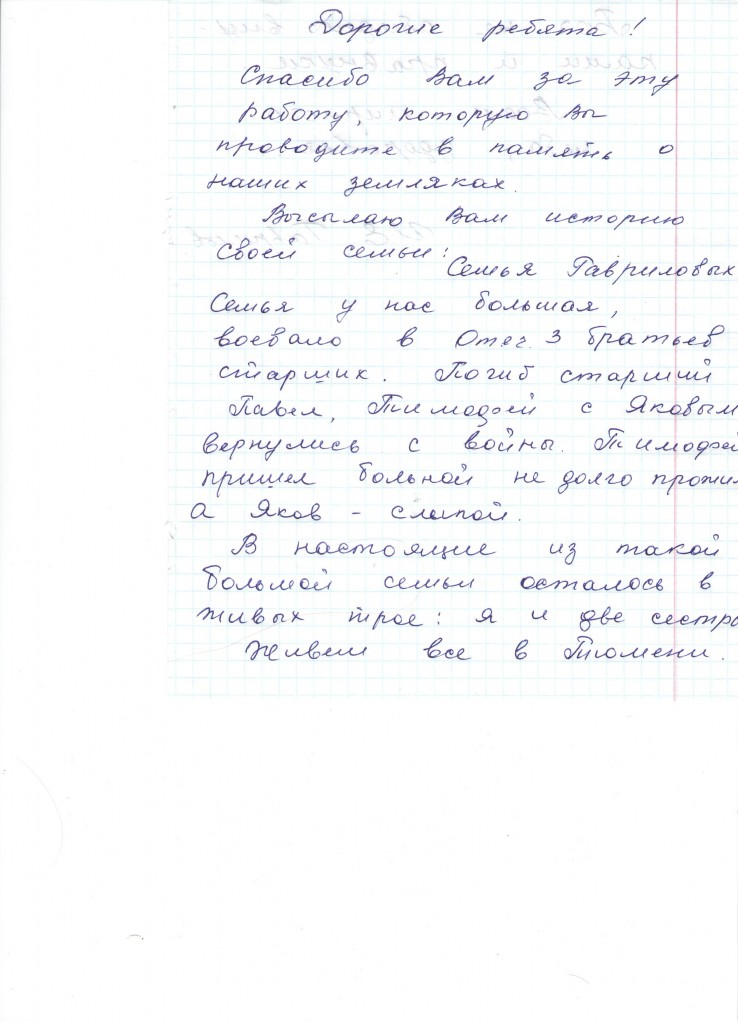 Дорогие ребята!
Спасибо Вам за эту
работу, которую вы
проводите в память о
наших земляках.
Высылаю Вам историю
своей семьи:
Семья Гавриловых
Семья у нас большая,
воевало в Отеч. 3 братьев
старших. Погиб старший
Павел, Тимофей с Яковым
вернулись с войны. Тимофей
пришел больной не долго прожил
а Яков - слепой.
В настоящие из такой
большой семьи осталось в
живых трое: я и две сестры
Живем все в Тюмени.